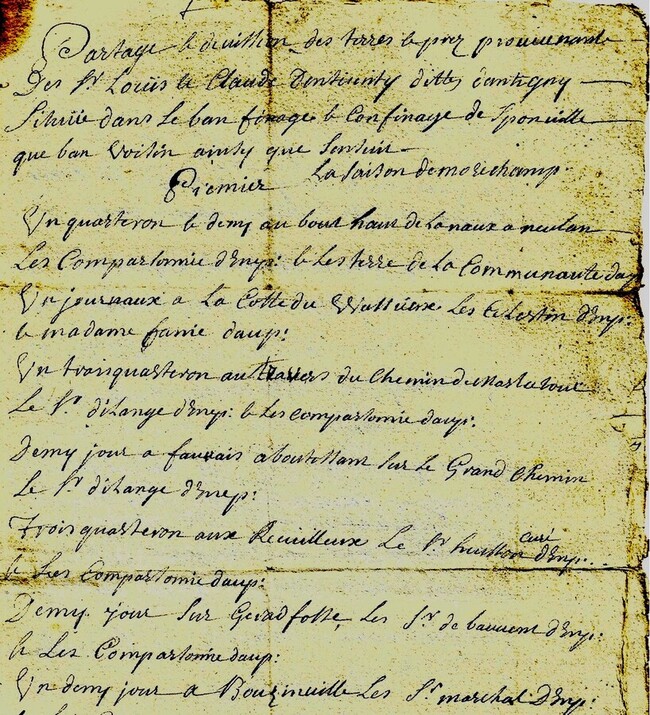 Partage & devission des terres & prez provenant
Des Sr Louïs & Claude dittz dantigny
Scituée dans le ban finage & Confinage de Sponville
que ban Voisin ainsy que Senssuit
Premier La saison de morichamp
Un quarteron & demy au bout haut de la naux a
Les Compartomie d'Enp: & Les terre de La Communauté daup
Un journaux a La Cotte du Les Celestin d'Enp:
& madame fanie daup:
Un troisquarteron au travers du Chemin de Marlatour
Le Sr d'ilange d'Enp: & Les compartomie daup:
Demy jour a aboutissant Sur Le Grand Chemin
Le Sr d'ilange d'Enep:
Trois quarteron aux Le Sr husson curé d'Enp:
& Les Compartomie daup:
Demy jour Sur Les Sr de d'Enp:
& Les Compartomie daup:
Un demy jour a Bourinville Les Sr marchal D'Enp: